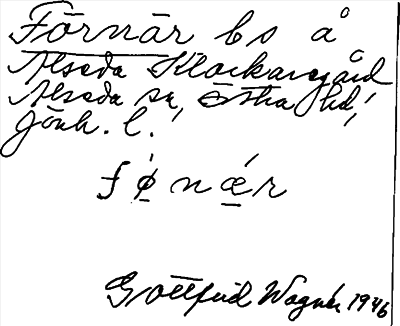 Förnär bs å
Alseda Klockaregård
Alseda sn, Östra hd,
Jönk. l.
fø̀nǽr
Gottfrid Wagnér 1946